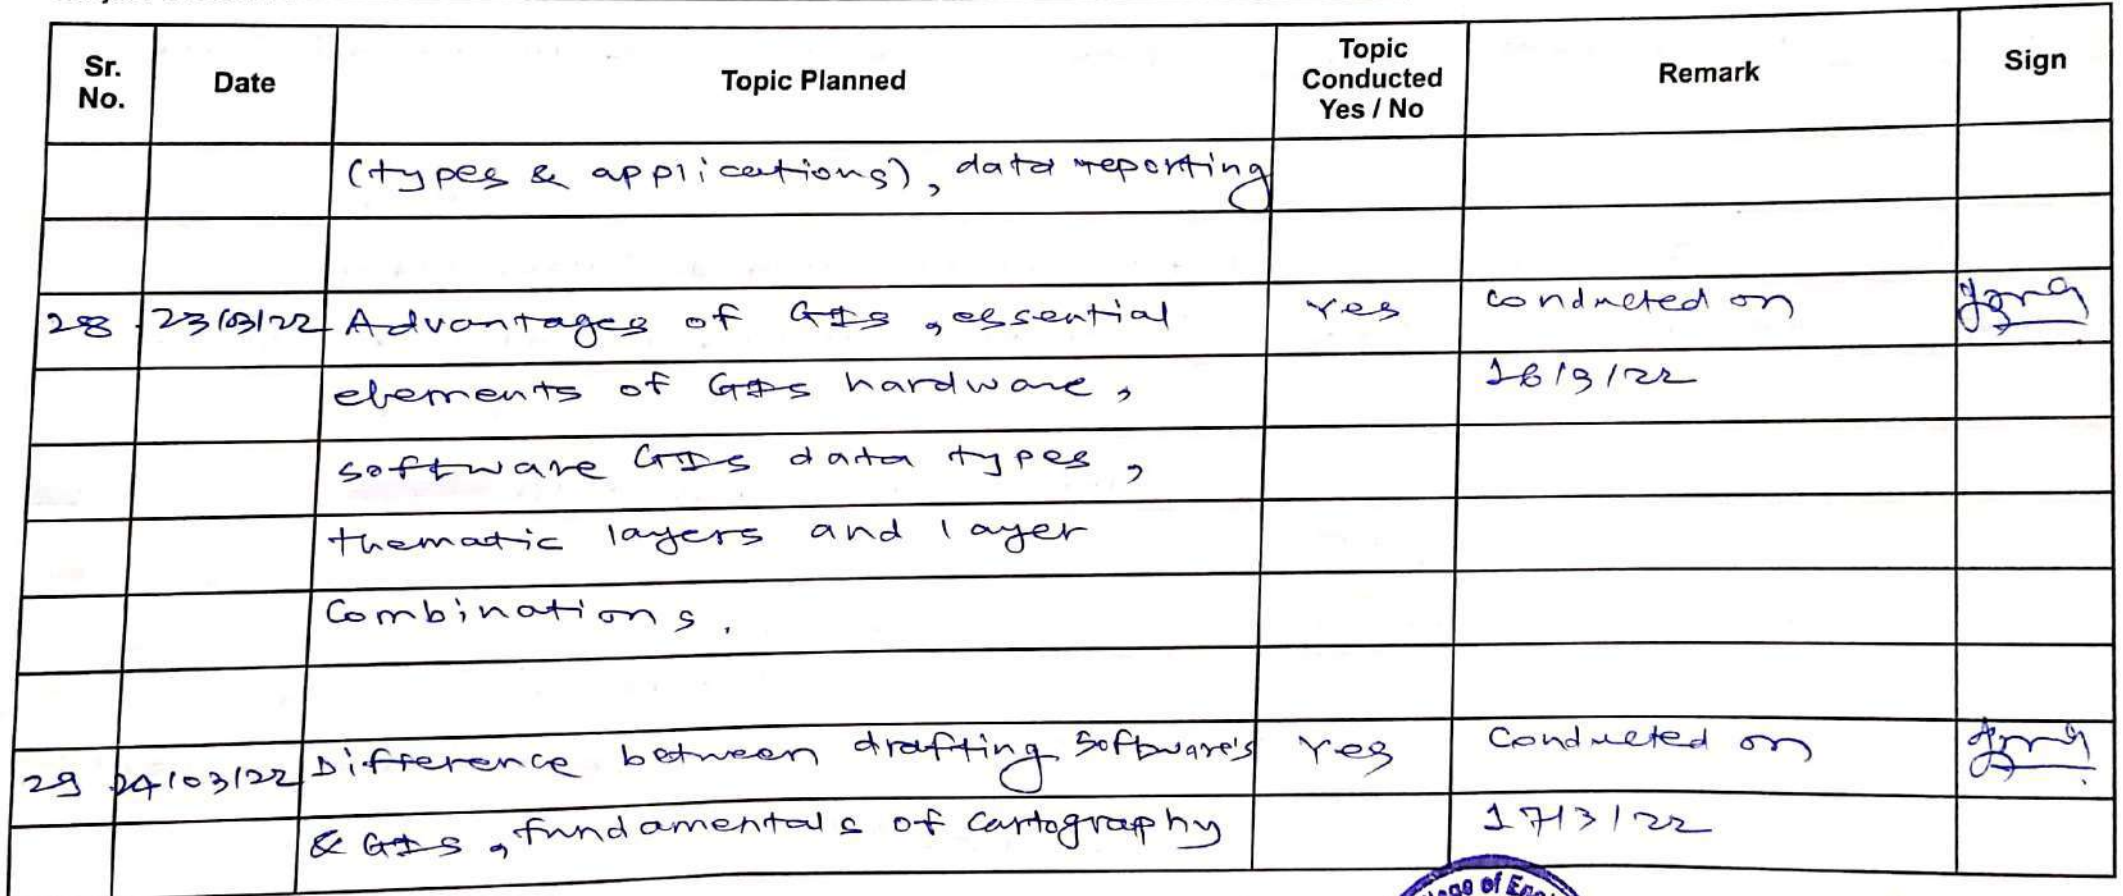 Sr. No. Date Topic Planned Topic Conducted Yes / No Remark Sign
(types & applications), data reporting
28 23/03/22 Advantages of GIS, essential Yes conducted on
elements of GIS hardware, 16/3/22
software GIS data types,
thematic layers and layer
Combinations.
29 24/03/22 Difference between drafting software's Yes Conducted on
& GIS, fundamentals of Cartography 17/3/22
of